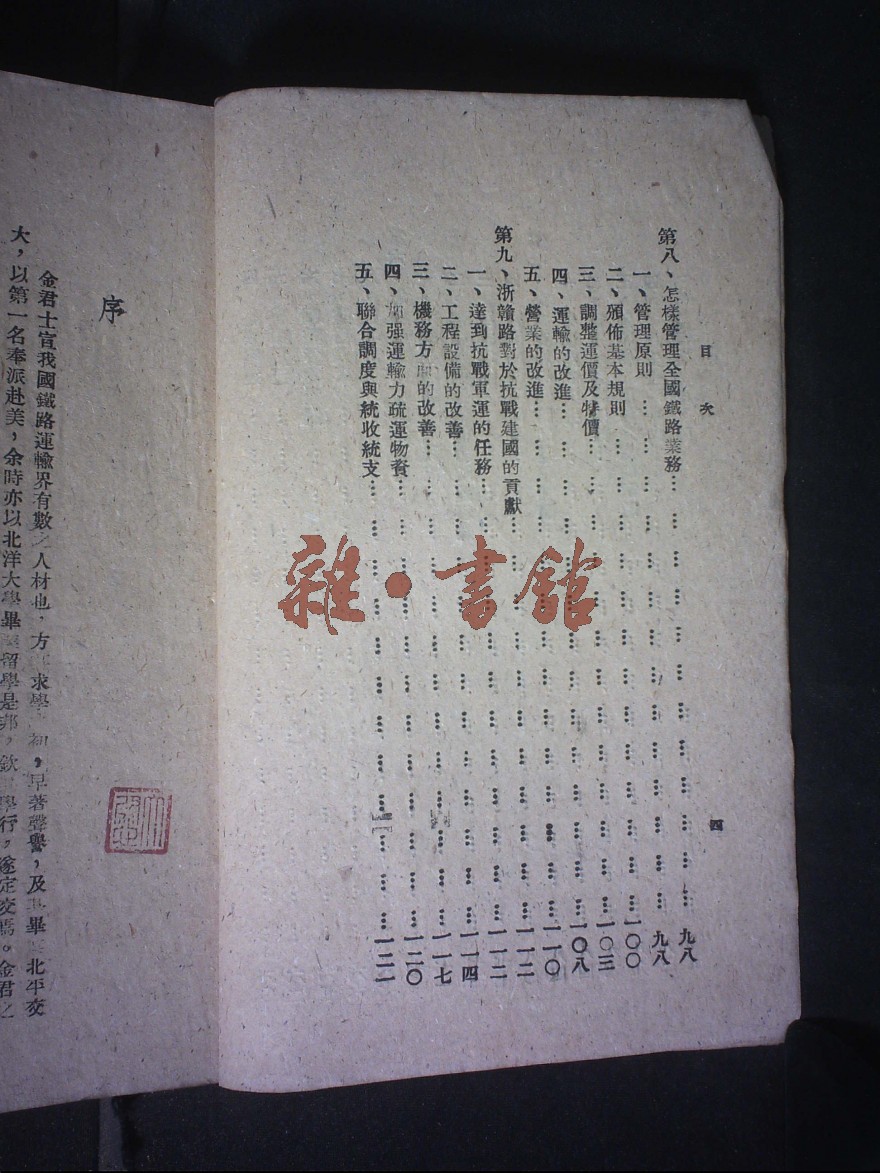 目次
四
第八、怎樣管理全國鐵路業務… … … … … … … … … …九八
一、管理原則… … … … … … … … … …九八
二、頒佈基本規則… … … … … … … … … …一〇〇
三、調整運價及特價… … … … … … … … … …一〇三
四、運輸的改進… … … … … … … … … …一〇八
五、營業的改進… … … … … … … … … …一一〇
第九、浙贛路對於抗戰建國的貢獻… … … … … … … … …一一二
一、達到抗戰軍運的任務… … … … … … … … …一一二
二、工程設備的改善… … … … … … … … …一一四
三、機務方面的改善… … … … … … … … …一一七
四、加强運輸力疏運物資… … … … … … … … …一二〇
五、聯合調度與統收統支… … … … … … … … …一二一
序
金君士宣我國鐵路運輸界有數之人材也,方求學初,早著聲譽,及畢北平交
大,以第一名奉派赴美,余時亦以北洋大學畢留學是邦,欽學行,遂定交焉。金君之
雜·書館